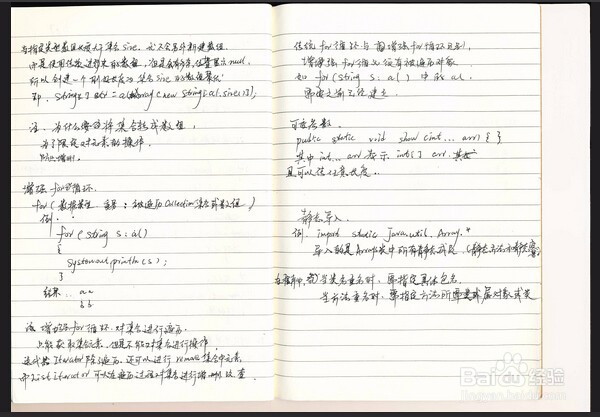 当指定类型数组长度大于集合size,就不会另外新建数组
而是使用传递进来的数组,没有存储位置显示null
所以创建一个刚好长度为集合size的数组最优
即 String[] str = al.toArray(new String[al.size()]);
注、为什么要将集合转成数组,
为了限定对元素的操作
防止增删。
增强 for循环.
for(数据类型 变量 : 被遍历Collection集合或者数组)
例.
for(String s:al)
{
System.out.println(s);
}
结果. aa
bb
注 增强for循环 对集合进行遍历
只能获取集合元素,但是不能对集合进行操作
迭代器Iterator除了遍历,还可以进行remove集合中元素
而ListIterator可以在遍历过程对集合进行增删改查.
传统for循环与增强for循环区别,
增强for循环必须有被遍历对象
如 for(String s:al) 中的al,
可变参数.
public static void show(int... arr){ }
其中 int... arr 表示 int[] arr.
且可以任意长度.
静态导入.
例. import static java.util.Array.*
导入的是Arrays类中所有静态成员
当类名重名时,要指定具体包名.
当方法重名时,要指定方法所属对象或类
Baidu经验